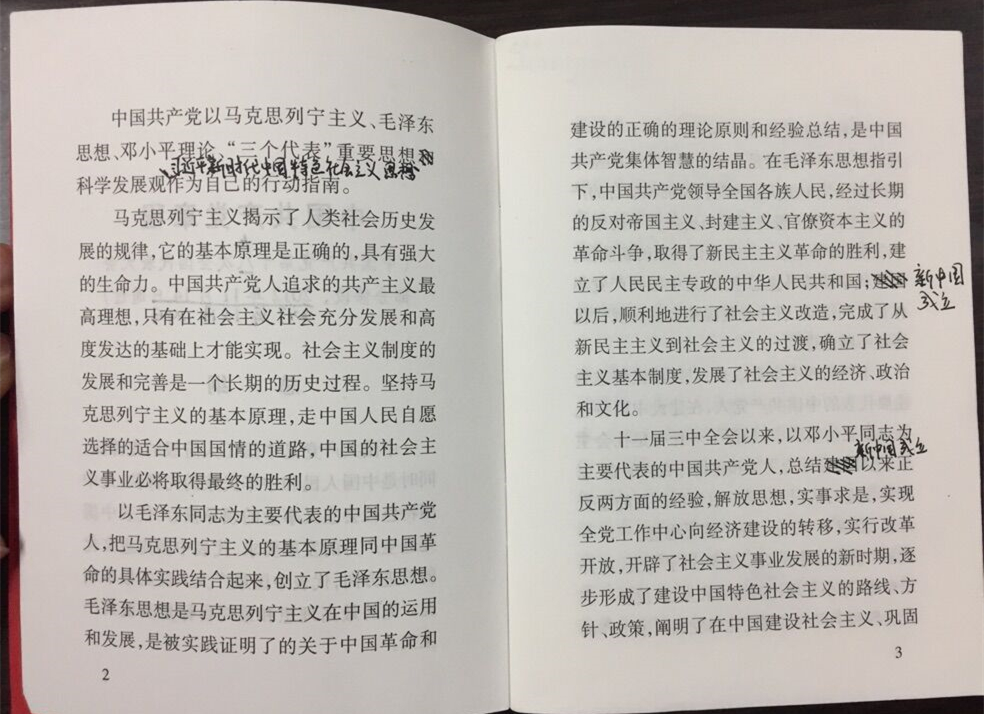 中国共产党以马克思列宁主义、毛泽东
思想、邓小平理论、“三个代表”重要思想
、习近平新时代中国特色社会主义思想
科学发展观作为自己的行动指南。
马克思列宁主义揭示了人类社会历史发
展的规律,它的基本原理是正确的,具有强大
的生命力。中国共产党人追求的共产主义最
高理想,只有在社会主义社会充分发展和高
度发达的基础上才能实现。社会主义制度的
发展和完善是一个长期的历史过程。坚持马
克思列宁主义的基本原理,走中国人民自愿
选择的适合中国国情的道路,中国的社会主
义事业必将取得最终的胜利。
以毛泽东同志为主要代表的中国共产党
人,把马克思列宁主义的基本原理同中国革
命的具体实践结合起来,创立了毛泽东思想。
毛泽东思想是马克思列宁主义在中国的运用
和发展,是被实践证明了的关于中国革命和
2
建设的正确的理论原则和经验总结,是中国
共产党集体智慧的结晶。在毛泽东思想指引
下,中国共产党领导全国各族人民,经过长期
的反对帝国主义、封建主义、官僚资本主义的
革命斗争,取得了新民主主义革命的胜利,建
立了人民民主专政的中华人民共和国;
新中国
成立
以后,顺利地进行了社会主义改造,完成了从
新民主主义到社会主义的过渡,确立了社会
主义基本制度,发展了社会主义的经济、政治
和文化。
十一届三中全会以来,以邓小平同志为
新中国成立
主要代表的中国共产党人,总结以来正
反两方面的经验,解放思想,实事求是,实现
全党工作中心向经济建设的转移,实行改革
开放,开辟了社会主义事业发展的新时期,逐
步形成了建设中国特色社会主义的路线、方
针、政策,阐明了在中国建设社会主义、巩固
3